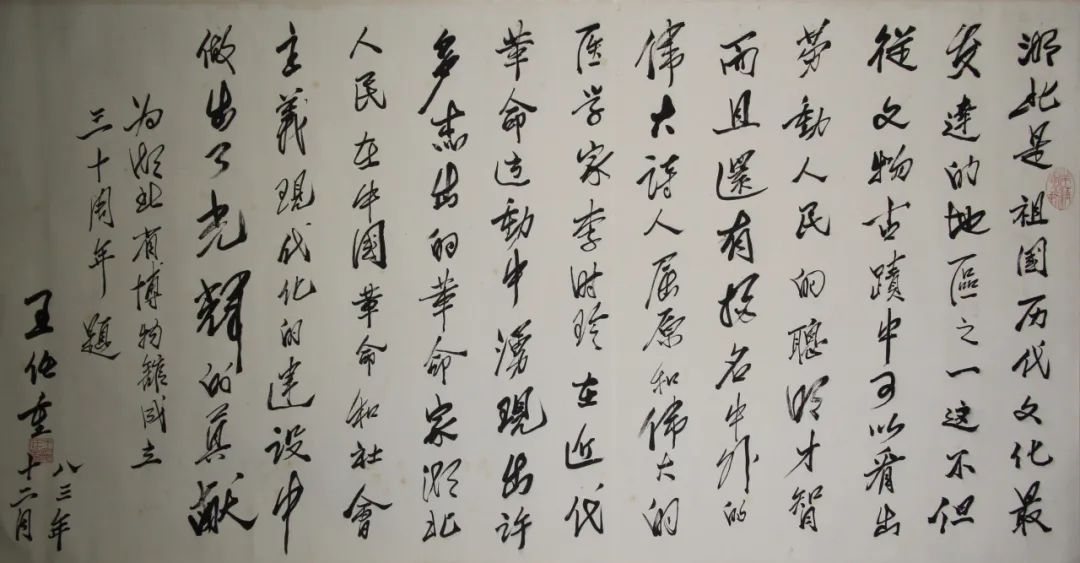 湖北是祖国历代文化最
发達的地區之一这不但
從文物古蹟中可以看出
劳動人民的聰明才智
而且還有扬名中外的
偉大詩人屈原和偉大的
医学家李时珍在近代
革命运動中湧現出许
多杰出的革命家湖北
人民在中國革命和社會
主義現代化的建设中
做出了光輝的貢献
为湖北省博物館成立
三十周年 题
王任重
八三年
十二月